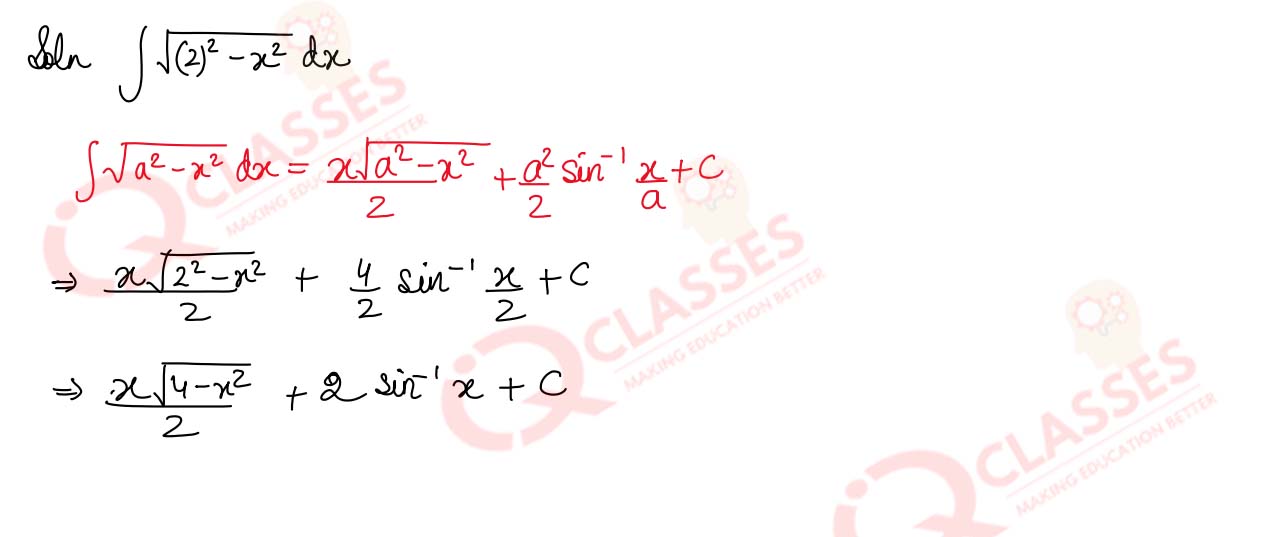 Soln ∫√((2)² – x²) dx
∫√(a² – x²) dx = x√(a² – x²)/2 + a²/2 sin⁻¹ x/a + C
⇒ x√(2² – x²)/2 + 4/2 sin⁻¹ x/2 + C
⇒ x√(4 – x²)/2 + 2 sin⁻¹ x + C
IQ CLASSES
MAKING EDUCATION BETTER
IQ CLASSES
MAKING EDUCATION BETTER
IQ CLASSES
MAKING EDUCATION BETTER